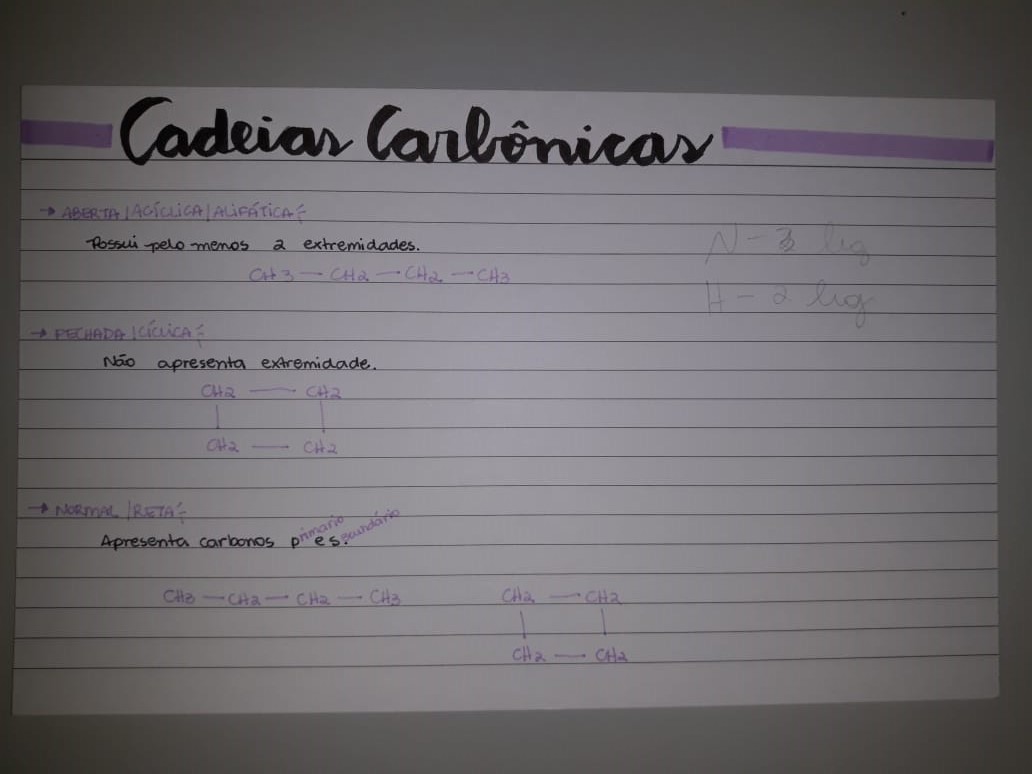 Cadeias Carbônicas
→ ABERTA | ACÍCLICA | ALIFÁTICA:
Possui pelo menos 2 extremidades.
CH3 — CH2 — CH2 — CH3
N - 3 lig
H - 2 lig
→ FECHADA | CÍCLICA:
Não apresenta extremidade.
CH2 — CH2
CH2 — CH2
→ NORMAL | RETA:
Apresenta carbonos primario e secundário.
CH3 — CH2 — CH2 — CH3 CH2 — CH2
CH2 — CH2